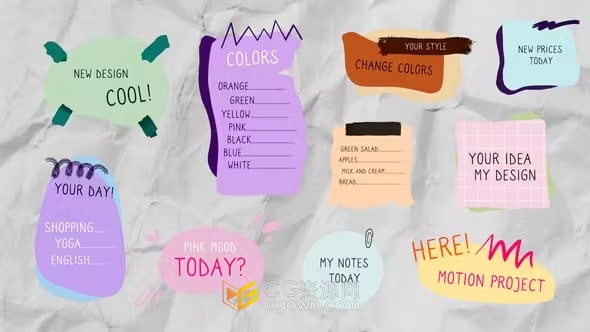 NEW DESIGN
COOL!
COLORS
ORANGE
GREEN
YELLOW
PINK
BLACK
BLUE
WHITE
YOUR STYLE
CHANGE COLORS
NEW PRICES
TODAY
GREEN SALAD
APPLES
MILK AND CREAM
BREAD
YOUR IDEA
MY DESIGN
YOUR DAY!
SHOPPING
YOGA
ENGLISH
PINK MOOD
TODAY?
MY NOTES
TODAY
HERE!
MOTION PROJECT
CG资源网
cgown.com